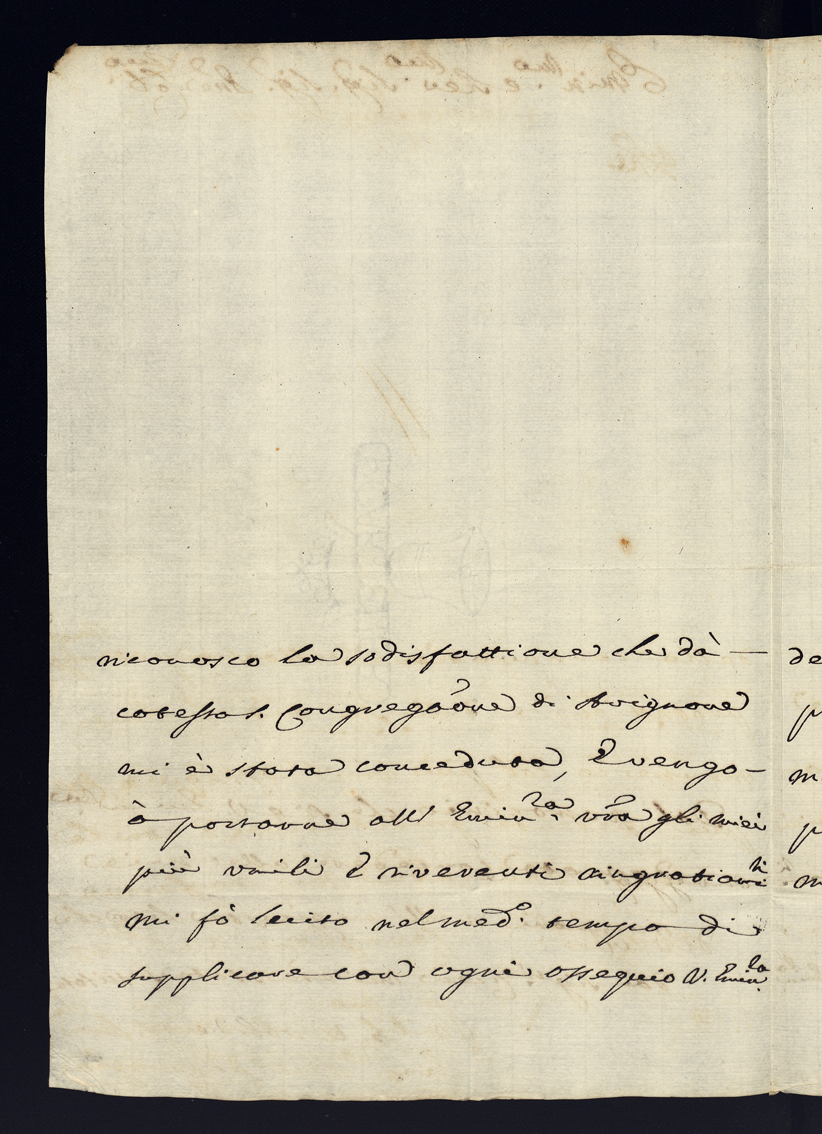 riconosco la sodisfattione che dà —
cotesta S. Congregaõne di Avignone
mi è stata conceduta, E vengo —
à portarne all' Emin.za vr̃a gli miei
più umili E riverenti ringratiam.ti
mi fò lecito nel med.o tempo di
supplicare con ogni ossequio V. Emin.za
de
p
m
p
m